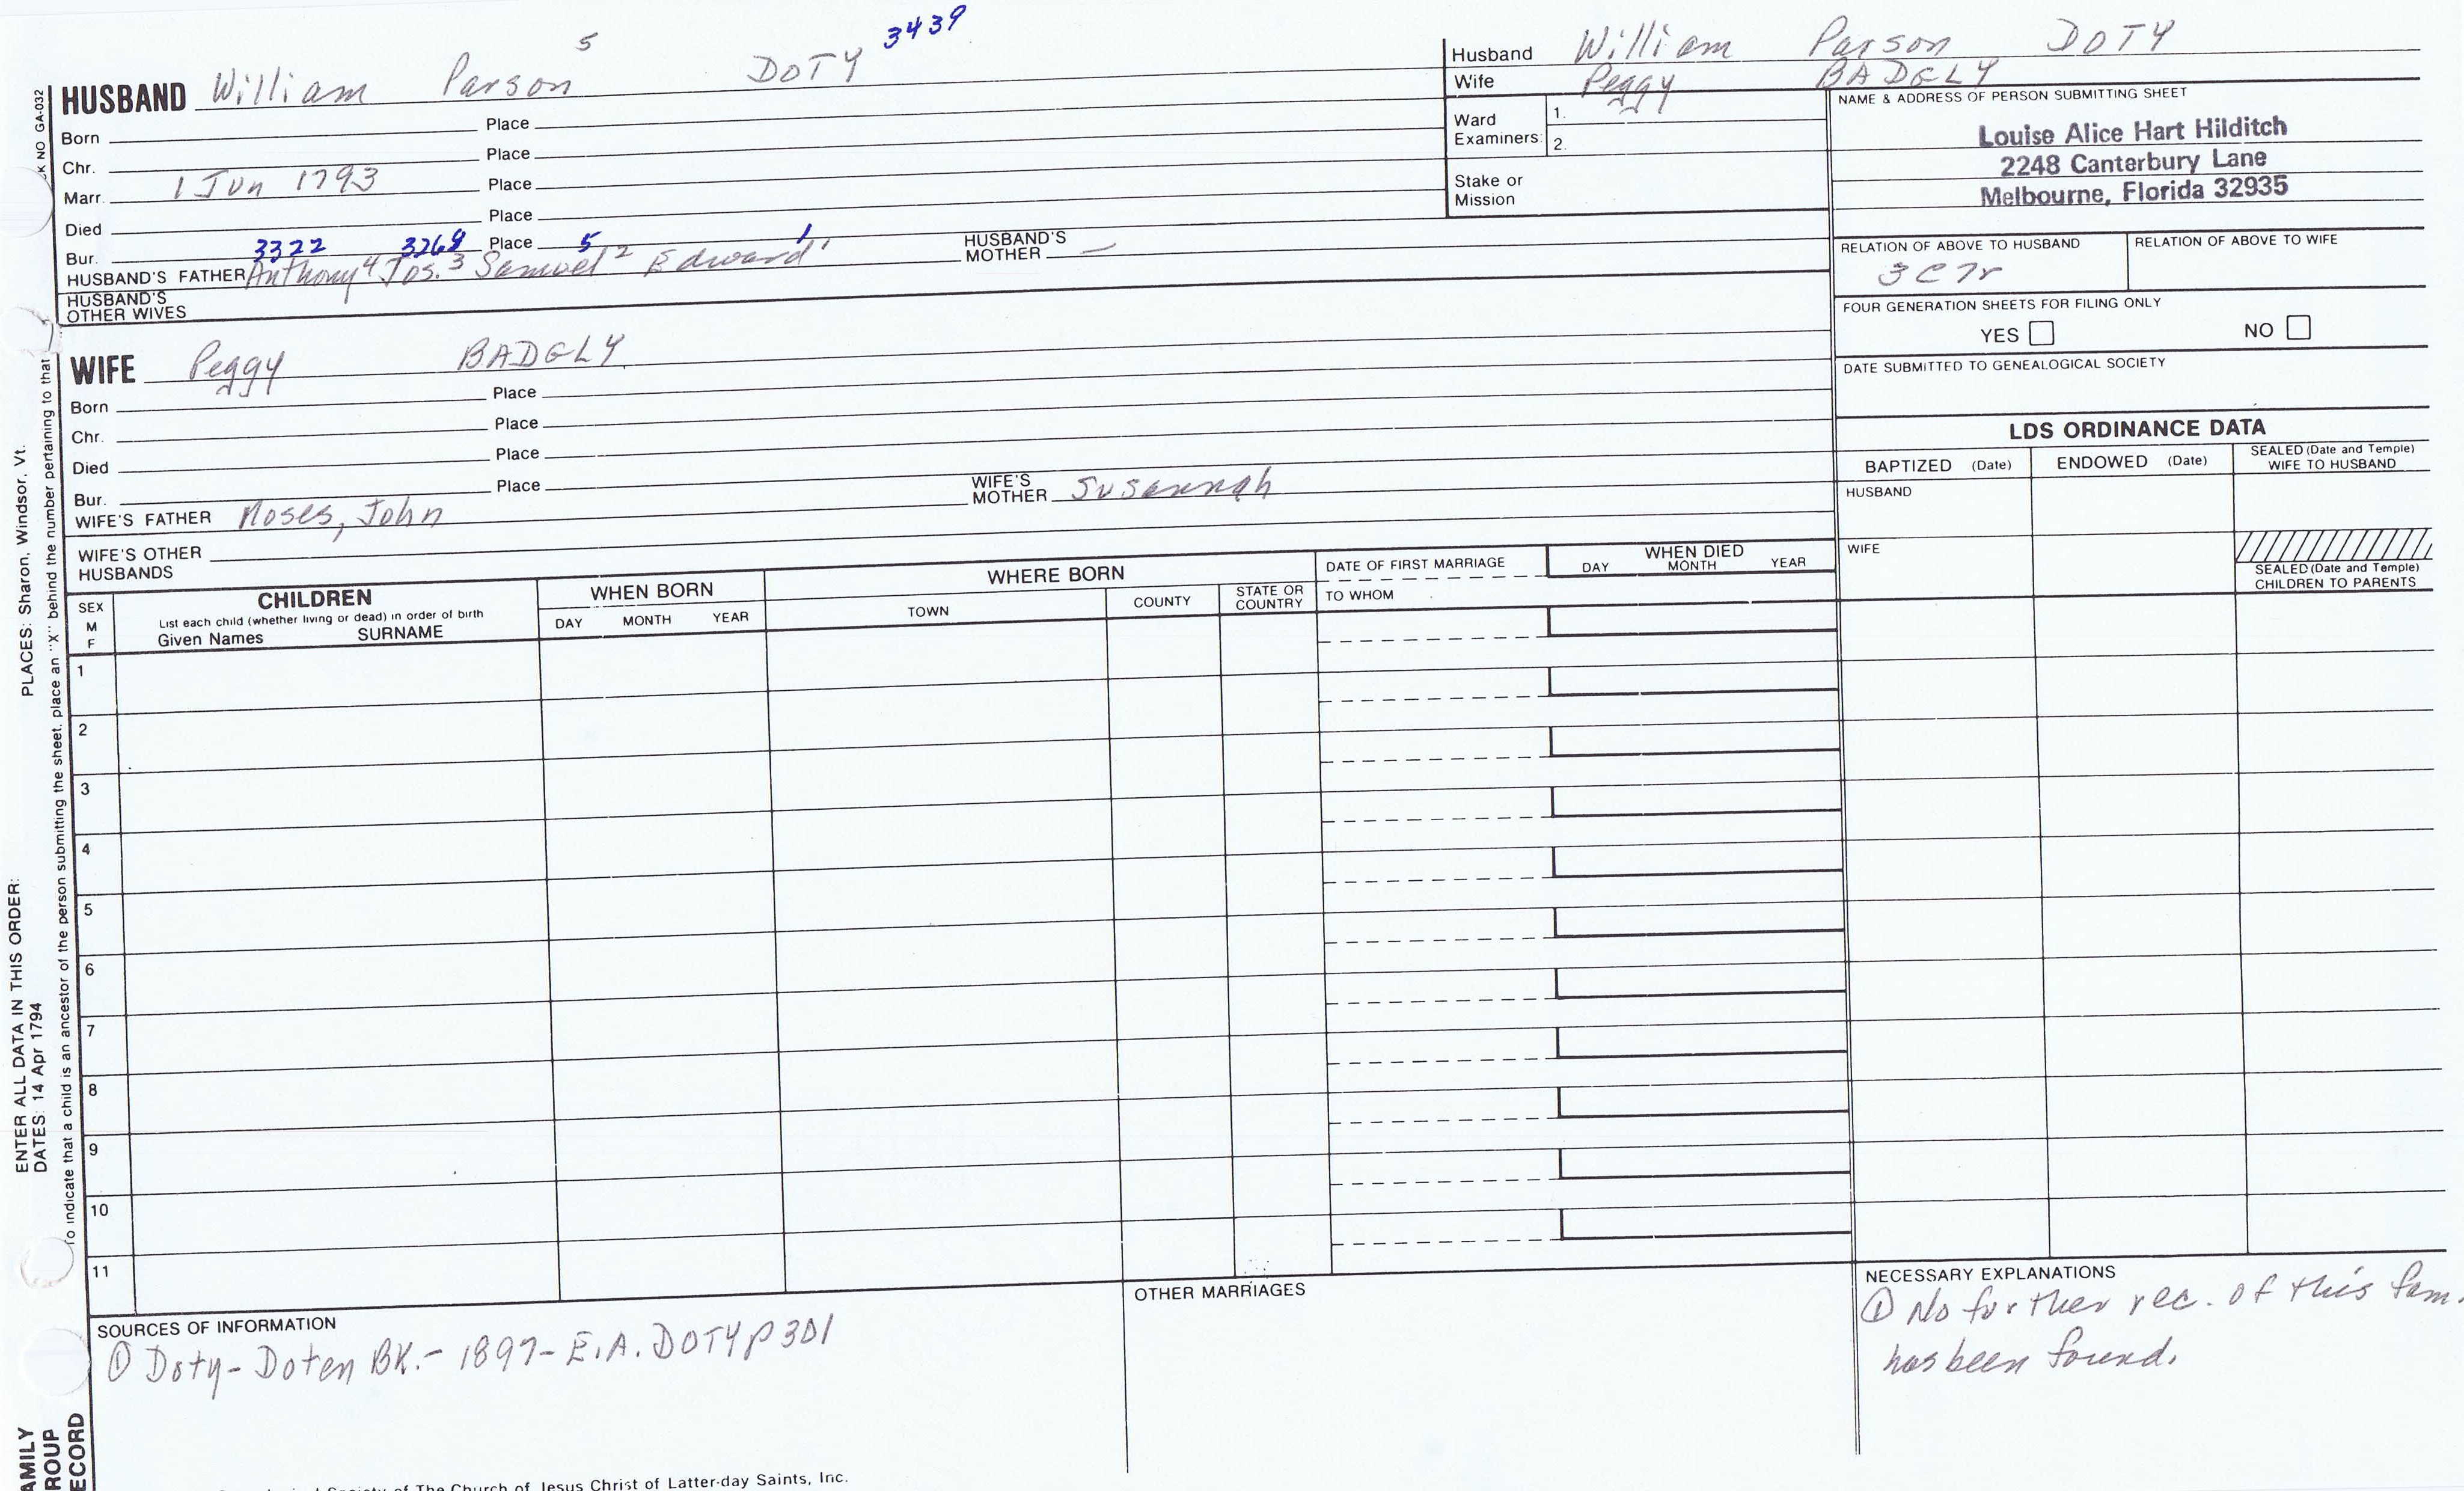 3439
HUSBAND William Parson 5 DOTY
Born Place
Chr. Place
Marr. 1 Jun 1793 Place
Died Place
Bur. Place
3322 3268 5 1
HUSBAND'S FATHER Anthony 4 Jos. 3 Samuel 2 Edward 1 HUSBAND'S MOTHER —
HUSBAND'S OTHER WIVES
Husband William Parson DOTY
Wife Peggy BADGLY
Ward Examiners: 1.
2.
Stake or Mission
NAME & ADDRESS OF PERSON SUBMITTING SHEET
Louise Alice Hart Hilditch
2248 Canterbury Lane
Melbourne, Florida 32935
RELATION OF ABOVE TO HUSBAND RELATION OF ABOVE TO WIFE
3C7r
FOUR GENERATION SHEETS FOR FILING ONLY
YES NO
DATE SUBMITTED TO GENEALOGICAL SOCIETY
WIFE Peggy BADGLY
Born Place
Chr. Place
Died Place
Bur. Place
WIFE'S FATHER Moses, John WIFE'S MOTHER Susannah
WIFE'S OTHER HUSBANDS
LDS ORDINANCE DATA
BAPTIZED (Date) ENDOWED (Date) SEALED (Date and Temple) WIFE TO HUSBAND
HUSBAND
WIFE
SEALED (Date and Temple) CHILDREN TO PARENTS
SEX M F
CHILDREN
List each child (whether living or dead) in order of birth
Given Names SURNAME
WHEN BORN
DAY MONTH YEAR
WHERE BORN
TOWN COUNTY STATE OR COUNTRY
DATE OF FIRST MARRIAGE
TO WHOM
WHEN DIED
DAY MONTH YEAR
1
2
3
4
5
6
7
8
9
10
11
SOURCES OF INFORMATION
① Doty-Doten BK.- 1897- E.A. DOTY p 301
OTHER MARRIAGES
NECESSARY EXPLANATIONS
① No further rec. of this fam.
has been found.
of The Church of Jesus Christ of Latter-day Saints, Inc.
NO GA-032
PLACES: Sharon, Windsor, Vt.
ENTER ALL DATA IN THIS ORDER:
DATES: 14 Apr 1794
To indicate that a child is an ancestor of the person submitting the sheet, place an "X" behind the number pertaining to that
AMILY
ROUP
ECORD